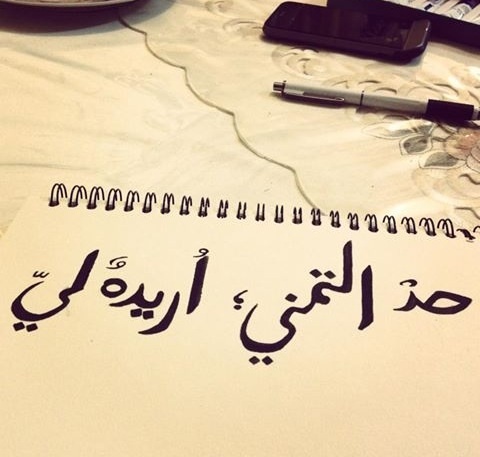 حدْ التمني؛ أُريدهُ ليّ